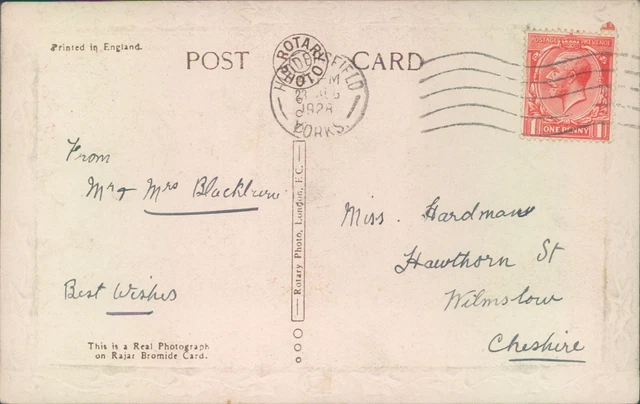 Printed in England.
POST CARD
ROTARY
PHOTO
HUDDERSFIELD
1928
YORKS.
POSTAGE REVENUE
ONE PENNY
From
Mr & Mrs Blackburn
Best Wishes
This is a Real Photograph
on Rajar Bromide Card.
Rotary Photo, London, E.C.
Miss. Hardman
Hawthorn St
Wilmslow
Cheshire